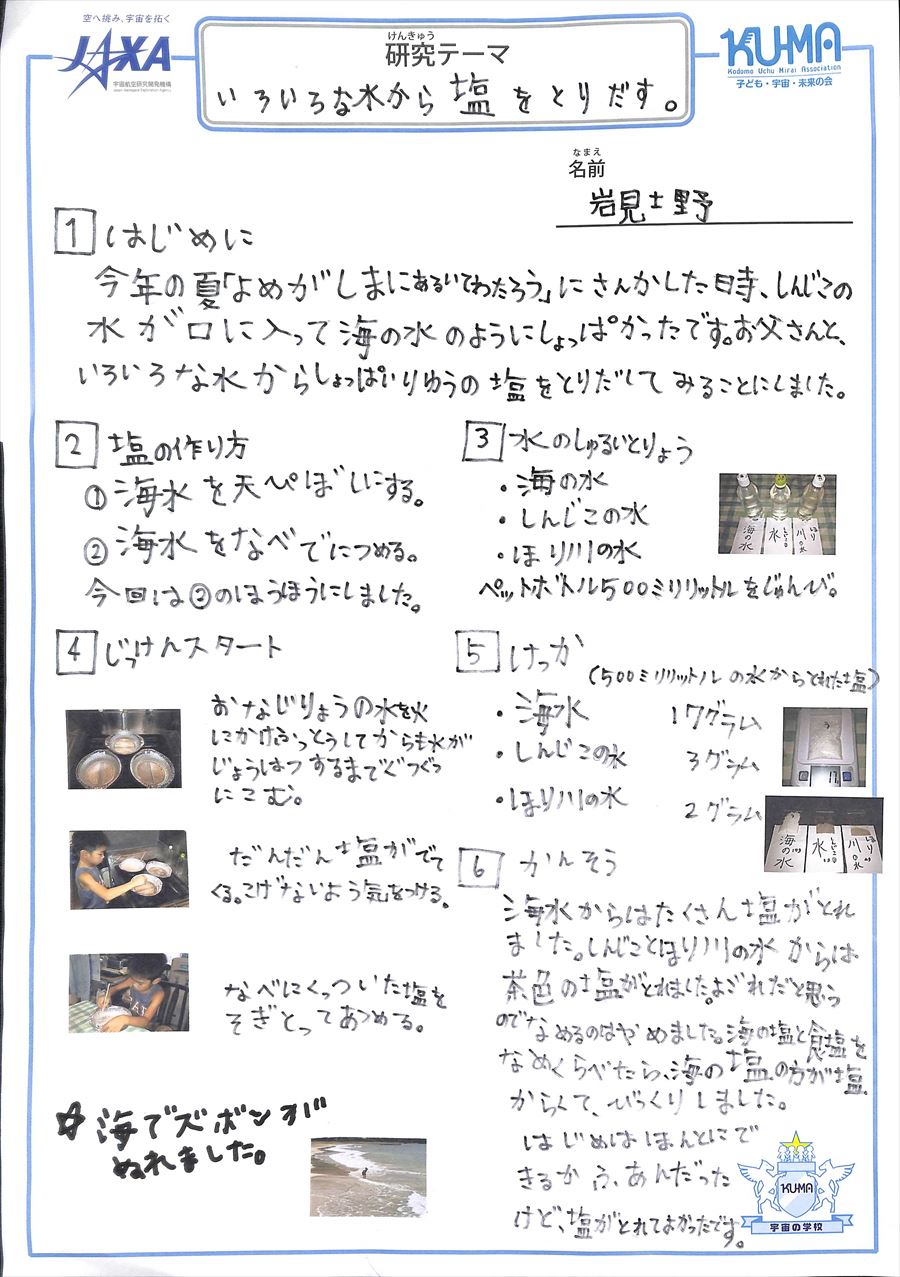 空へ挑み、宇宙を拓く
JAXA
宇宙航空研究開発機構
Japan Aerospace Exploration Agency
けんきゅう
研究テーマ
いろいろな水から塩をとりだす。
KU-MA
Kodomo Uchu Mirai Association
子ども・宇宙・未来の会
なまえ
名前
岩見士野
1 はじめに
今年の夏「よめがしまにあるいてわたろう」にさんかした時、しんじこの
水が口に入って海の水のようにしょっぱかったです。お父さんと、
いろいろな水からしょっぱいりゆうの塩をとりだしてみることにしました。
2 塩の作り方
① 海水を天ぴぼしにする。
② 海水をなべでにつめる。
今回は②のほうほうにしました。
3 水のしゅるいとりょう
・海の水
・しんじこの水
・ほり川の水
ペットボトル500ミリリットルをじゅんび。
海の水
しんじこの水
ほり川の水
4 じっけんスタート
おなじりょうの水を火
にかけふっとうしてからも水が
じょうはつするまでぐつぐつ
にこむ。
だんだん塩がでて
くる。こげないよう気をつける。
なべにくっついた塩を
そぎとってあつめる。
☆海でズボンが
ぬれました。
5 けっか
(500ミリリットルの水からとれた塩)
・海水 17グラム
・しんじこの水 3グラム
・ほり川の水 2グラム
海の水
しんじこの水
ほり川の水
6 かんそう
海水からはたくさん塩がとれ
ました。しんじことほり川の水からは
茶色の塩がとれました。よごれだと思う
のでなめるのはやめました。海の塩と食塩を
なめくらべたら、海の塩の方が塩
からくて、びっくりしました。
はじめはほんとにで
きるかふあんだった
けど、塩がとれてよかったです。
KU-MA
宇宙の学校